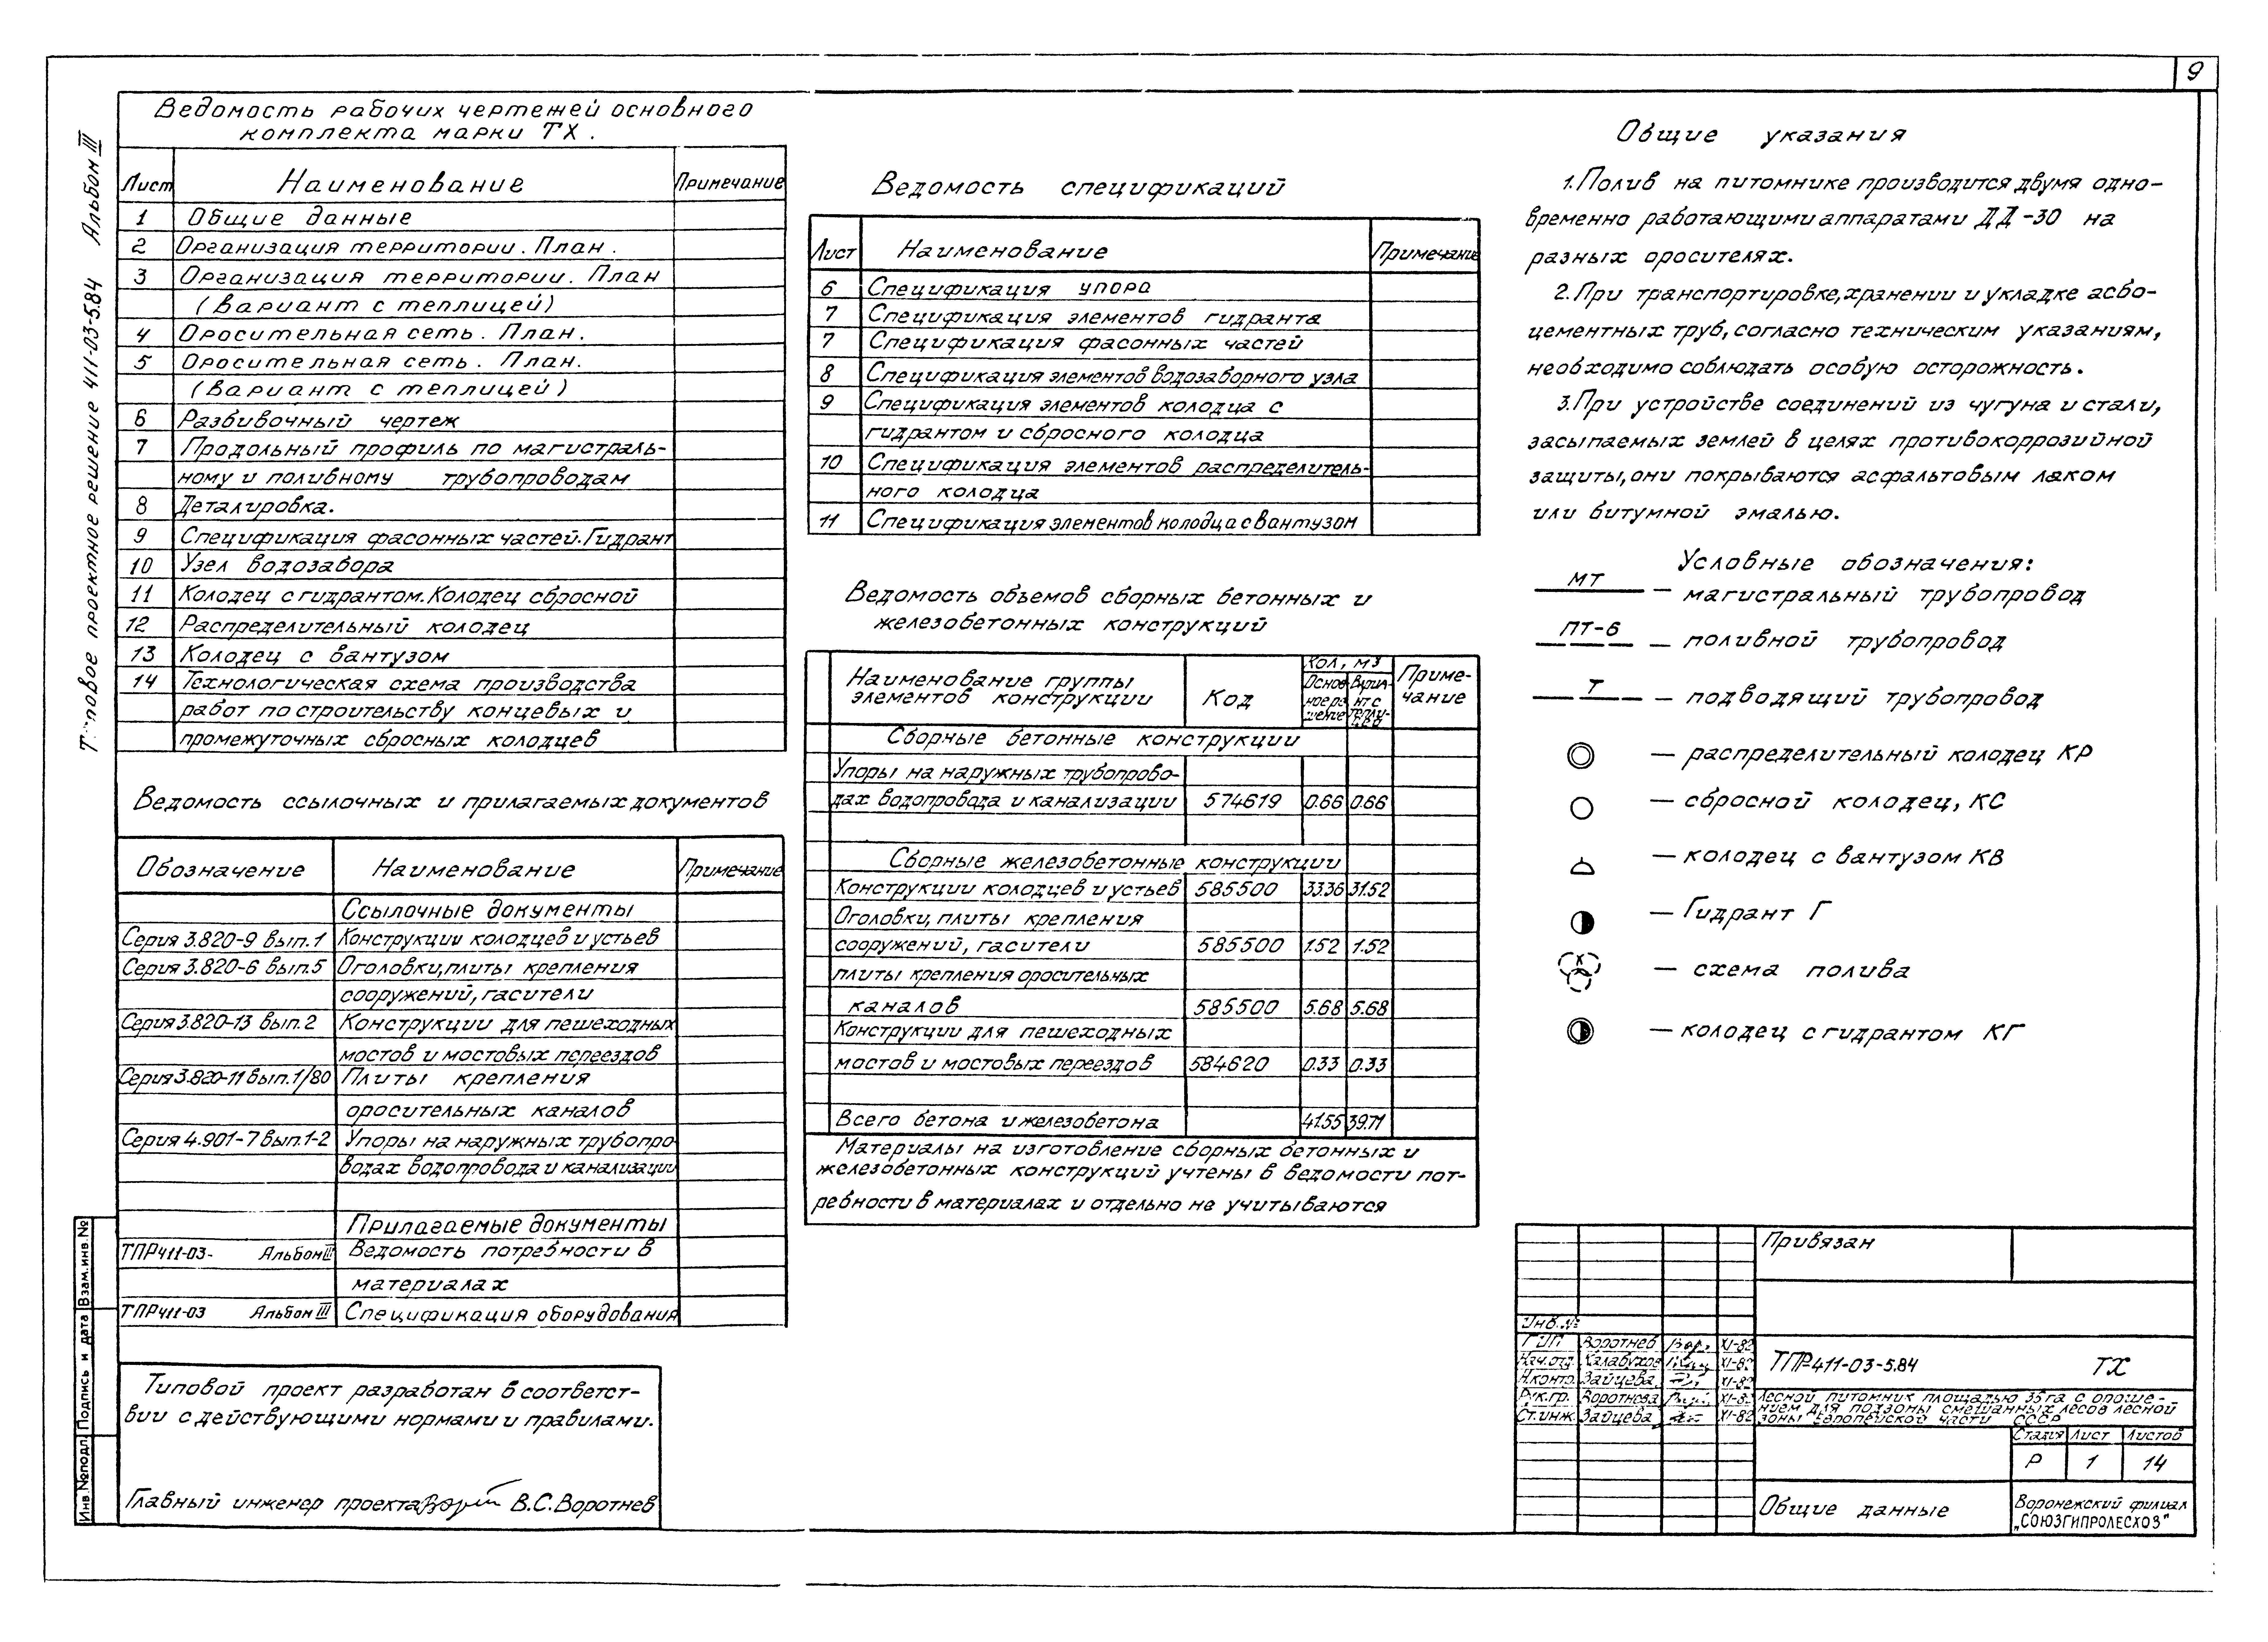 9
Типовое проектное решение 411-03-5.84 Альбом III
Ведомость рабочих чертежей основного
комплекта марки ТХ.
Лист Наименование Примечание
1 Общие данные
2 Организация территории. План.
3 Организация территории. План
(вариант с теплицей)
4 Оросительная сеть. План.
5 Оросительная сеть. План.
(вариант с теплицей)
6 Разбивочный чертеж
7 Продольный профиль по магистраль-
ному и поливному трубопроводам
8 Деталировка.
9 Спецификация фасонных частей. Гидрант
10 Узел водозабора
11 Колодец с гидрантом. Колодец сбросной
12 Распределительный колодец
13 Колодец с вантузом
14 Технологическая схема производства
работ по строительству концевых и
промежуточных сбросных колодцев
Ведомость ссылочных и прилагаемых документов
Обозначение Наименование Примечание
Ссылочные документы
Серия 3.820-9 вып.1 Конструкции колодцев и устьев
Серия 3.820-6 вып.5 Оголовки, плиты крепления
сооружений, гасители
Серия 3.820-13 вып.2 Конструкции для пешеходных
мостов и мостовых переездов
Серия 3.820-11 вып.1/80 Плиты крепления
оросительных каналов
Серия 4.901-7 вып.1-2 Упоры на наружных трубопро
водах водопровода и канализации
Прилагаемые документы
ТПР411-03- Альбом III Ведомость потребности в
материалах
ТПР411-03 Альбом III Спецификация оборудования
Типовой проект разработан в соответст-
вии с действующими нормами и правилами.
Главный инженер проекта В.С.Воротнев
Инв.№подл. Подпись и дата Взам.инв.№
Ведомость спецификаций
Лист Наименование Примечание
6 Спецификация упора
7 Спецификация элементов гидранта
7 Спецификация фасонных частей
8 Спецификация элементов водозаборного узла
9 Спецификация элементов колодца с
гидрантом и сбросного колодца
10 Спецификация элементов распределитель-
ного колодца
11 Спецификация элементов колодца с вантузом
Ведомость объемов сборных бетонных и
железобетонных конструкций
Наименование группы
элементов конструкции
Код
Кол, м3
Основ
ное ре
шение
Вариа-
нт с
тепли-
цей
Приме-
чание
Сборные бетонные конструкции
Упоры на наружных трубопрово-
дах водопровода и канализации 574619 0.66 0.66
Сборные железобетонные конструкции
Конструкции колодцев и устьев 585500 33.36 31.52
Оголовки, плиты крепления
сооружений, гасители 585500 1.52 1.52
плиты крепления оросительных
каналов 585500 5.68 5.68
Конструкции для пешеходных
мостов и мостовых переездов 584620 0.33 0.33
Всего бетона и железобетона 41.55 39.71
Материалы на изготовление сборных бетонных и
железобетонных конструкций учтены в ведомости пот-
ребности в материалах и отдельно не учитываются
Общие указания
1. Полив на питомнике производится двумя одно-
временно работающими аппаратами ДД-30 на
разных оросителях.
2. При транспортировке, хранении и укладке асбо-
цементных труб, согласно техническим указаниям,
необходимо соблюдать особую осторожность.
3. При устройстве соединений из чугуна и стали,
засыпаемых землей в целях противокоррозийной
защиты, они покрываются асфальтовым лаком
или битумной эмалью.
Условные обозначения:
МТ — магистральный трубопровод
ПТ-6 — поливной трубопровод
Т — подводящий трубопровод
— распределительный колодец КР
— сбросной колодец, КС
— колодец с вантузом КВ
— Гидрант Г
— схема полива
— колодец с гидрантом КГ
Привязан
Инв.№
ГИП Воротнев XI-82
Нач.отд. Калабухов XI-82
Н.контр. Зайцева XI-82
Рук.гр. Воротнева XI-82
Ст.инж. Зайцева XI-82
ТПР411-03-5.84 ТХ
Лесной питомник площадью 35га с ороше-
нием для подзоны смешанных лесов лесной
зоны Европейской части СССР
Стадия Лист Листов
Р 1 14
Общие данные
Воронежский филиал
„СОЮЗГИПРОЛЕСХОЗ"